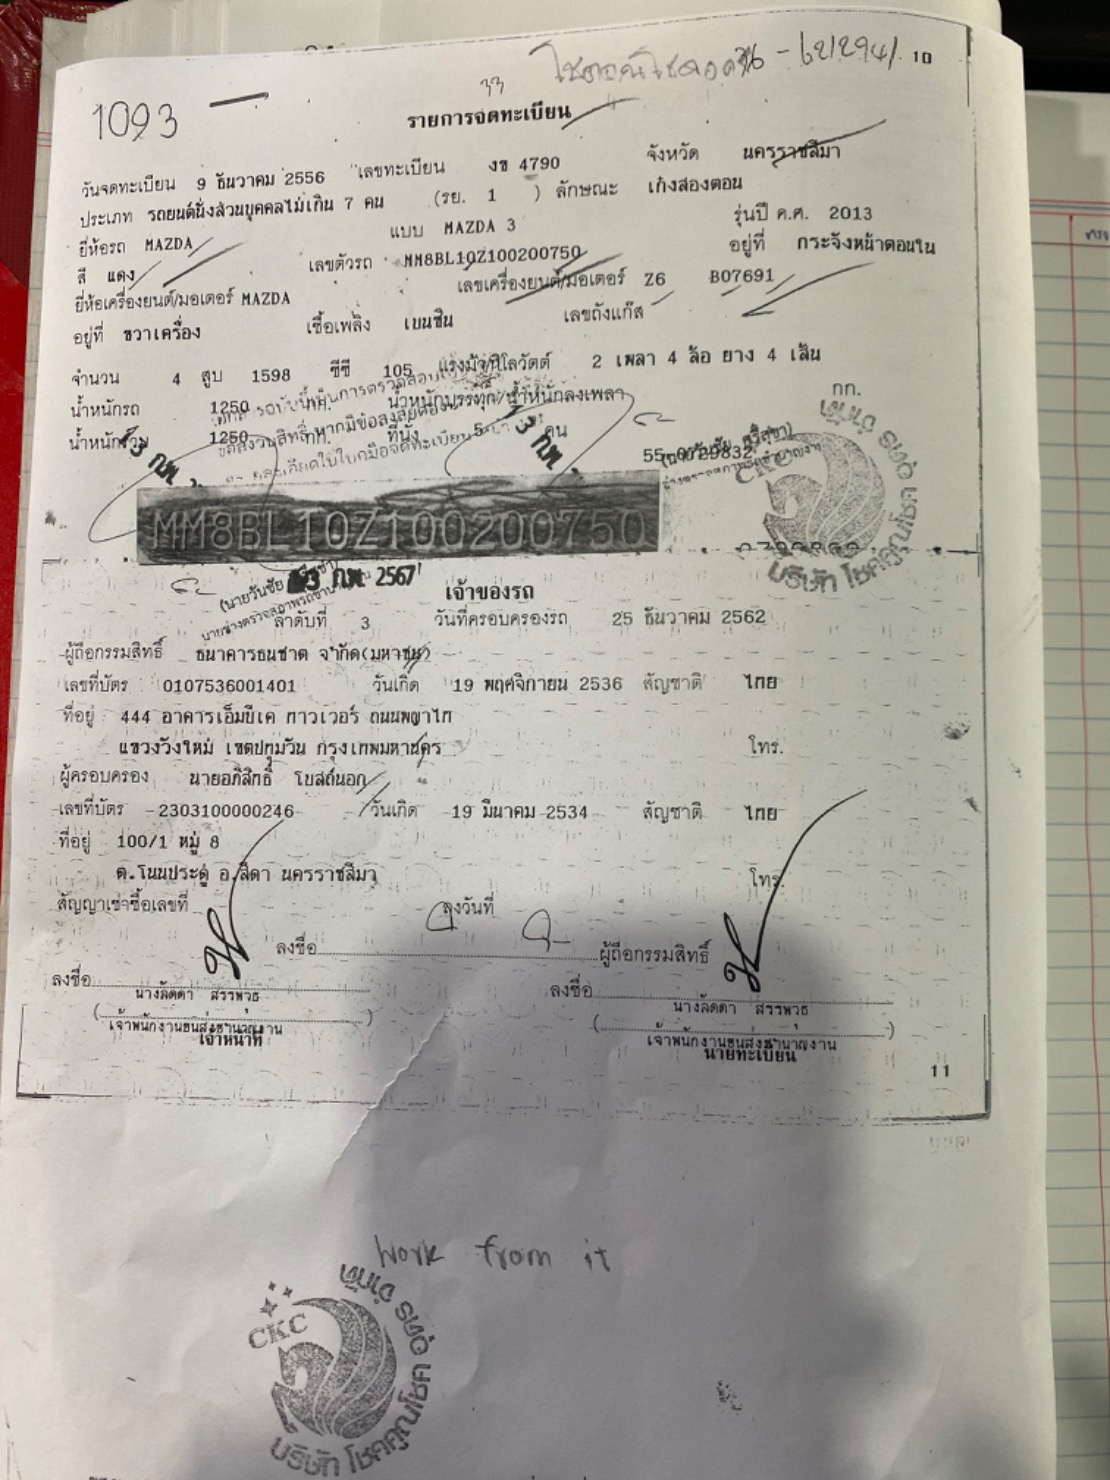 10
33
1093
รายการจดทะเบียน
วันจดทะเบียน 9 ธันวาคม 2556 เลขทะเบียน งข 4790 จังหวัด นครราชสีมา
ประเภท รถยนต์นั่งส่วนบุคคลไม่เกิน 7 คน (รย. 1 ) ลักษณะ เก๋งสองตอน
ยี่ห้อรถ MAZDA แบบ MAZDA 3 รุ่นปี ค.ศ. 2013
สี แดง เลขตัวรถ MM8BL10Z100200750 อยู่ที่ กระจังหน้าตอนใน
ยี่ห้อเครื่องยนต์/มอเตอร์ MAZDA เลขเครื่องยนต์/มอเตอร์ Z6 B07691
อยู่ที่ ขวาเครื่อง เชื้อเพลิง เบนซิน เลขถังแก๊ส
จำนวน 4 สูบ 1598 ซีซี 105 แรงม้า/กิโลวัตต์ 2 เพลา 4 ล้อ ยาง 4 เส้น
น้ำหนักรถ 1250 กก. น้ำหนักบรรทุก/น้ำหนักลงเพลา กก.
น้ำหนักรวม 1250 กก. ที่นั่ง 5 คน
55-0729832
MM8BL10Z100200750
CKC
บริษัท โชคคูณโชค ออโต้ จำกัด
3 ก.พ. 2567
เจ้าของรถ
ลำดับที่ 3 วันที่ครอบครองรถ 25 ธันวาคม 2562
ผู้ถือกรรมสิทธิ์ ธนาคารธนชาต จำกัด(มหาชน)
เลขที่บัตร 0107536001401 วันเกิด 19 พฤศจิกายน 2536 สัญชาติ ไทย
ที่อยู่ 444 อาคารเอ็มบีเค ทาวเวอร์ ถนนพญาไท
แขวงวังใหม่ เขตปทุมวัน กรุงเทพมหานคร โทร.
ผู้ครอบครอง นายอภิสิทธิ์ โบสถ์นอก
เลขที่บัตร -2303100000246 วันเกิด 19 มีนาคม 2534 สัญชาติ ไทย
ที่อยู่ 100/1 หมู่ 8
ต.โนนประดู่ อ.สีดา นครราชสีมา โทร.
สัญญาเช่าซื้อเลขที่ ลงวันที่
ลงชื่อ ผู้ถือกรรมสิทธิ์
ลงชื่อ ลงชื่อ
นางลัดดา สรรพวุธ นางลัดดา สรรพวุธ
( ) ( )
เจ้าพนักงานขนส่งชำนาญงาน เจ้าพนักงานขนส่งชำนาญงาน
เจ้าหน้าที่ นายทะเบียน
11
work from it
CKC
บริษัท โชคคูณโชค ออโต้ จำกัด